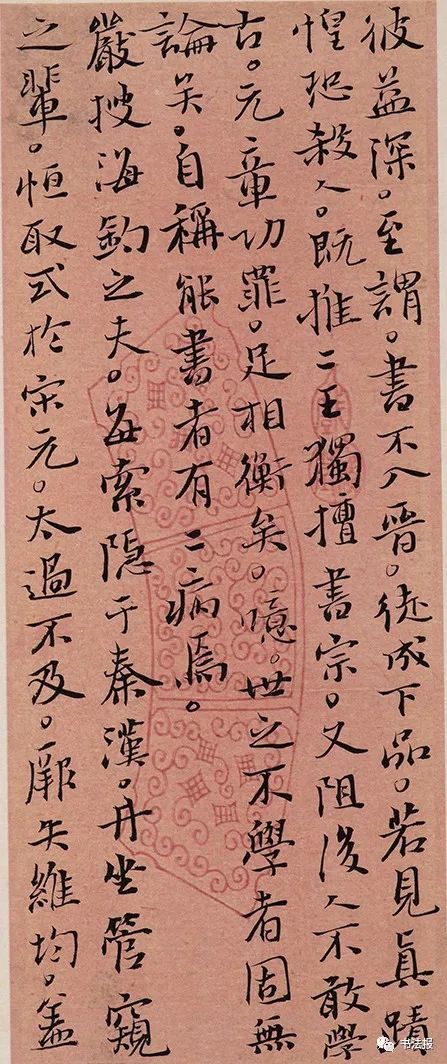 彼益深。至謂。書不入晉。徒成下品。若見真蹟
惶恐殺人。既推二王獨擅書宗。又阻後人不敢學
古。元章功罪。足相衡矣。噫。世之不學者固無
論矣。自稱能書者有二病焉。
巖搜海釣之夫。每索隐于秦漢。井坐管窺
之輩。恒取式於宋元。太過不及。厥失維均。蓋
书法报